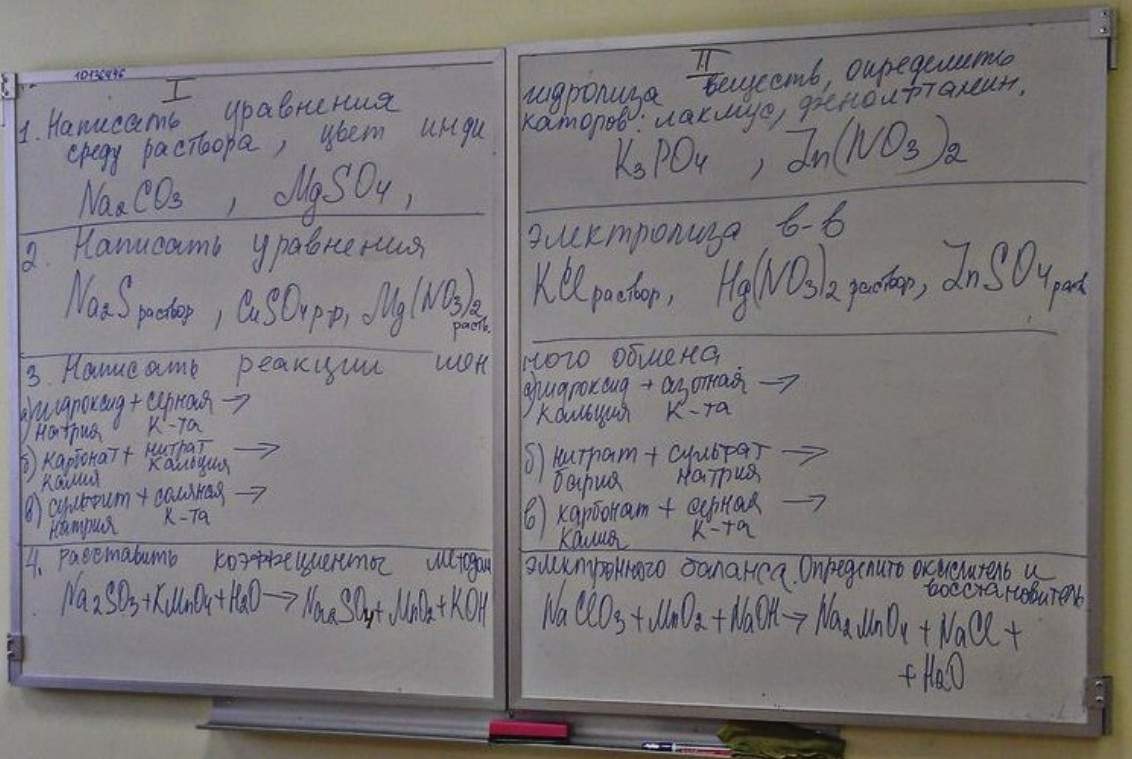 10136496
I
1. Написать уравнения
среду раствора, цвет инди
Na₂CO₃, MgSO₄,
2. Написать уравнения
Na₂S раствор, CuSO₄ р-р, Mg(NO₃)₂ раств.
3. Написать реакции ион
а) гидроксид + серная →
натрия к-та
б) карбонат + нитрат →
калия кальция
в) сульфит + соляная →
натрия к-та
4. расставить коэффециенты методом
Na₂SO₃ + KMnO₄ + H₂O → Na₂SO₄ + MnO₂ + KOH
II
гидролиза веществ, определить
каторов: лакмус, фенолфталеин.
K₃PO₄, Zn(NO₃)₂
электролиза в-в
KCl раствор, Hg(NO₃)₂ раствор, ZnSO₄ раств
ного обмена
а) гидроксид + азотная →
кальция к-та
б) нитрат + сульфат →
бария натрия
в) карбонат + серная →
калия к-та
электронного баланса. Определить окислитель и
восстановитель
NaClO₃ + MnO₂ + NaOH → Na₂MnO₄ + NaCl +
+ H₂O